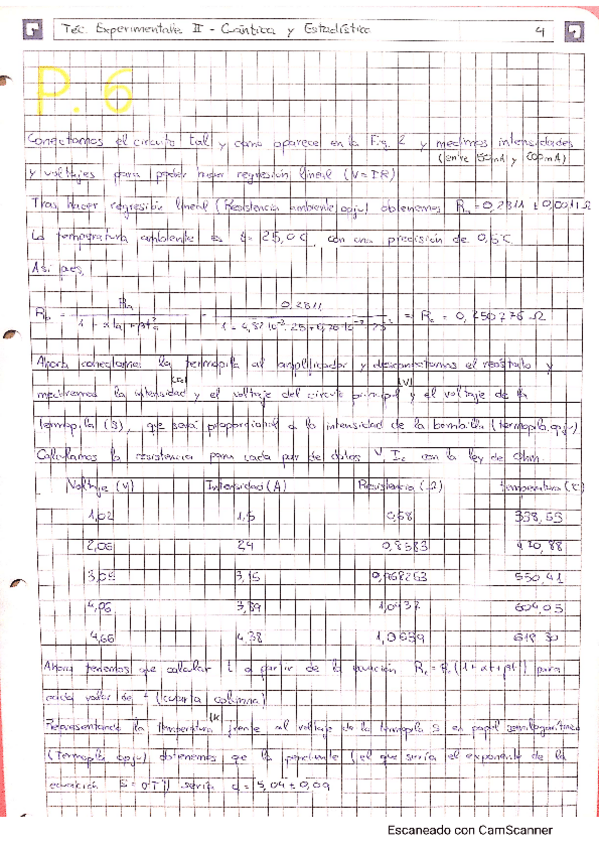 Tec. Experimentales II - Cuántica y Estadística 4
P. 6
Conectamos el circuito tal y como aparece en la Fig. 2 y medimos intensidades
(entre 50mA y mA)
y voltajes para poder hacer regresión lineal (V = IR)
Tras hacer regresión lineal (Resistencia ambiente.opju) obtenemos R = 0,2811 ± 0,0011 Ω
La temperatura ambiente es t = 25,0°C, con una precisión de 0,5°C
Así pues,
R = R / 1 + αta + βta² = 0,2811 / 1 + 4,82·10⁻³·25 + 6,76·10⁻⁷·25² ⇒ R = 0,250776 Ω
Ahora conectamos la termopila al amplificador y desconectamos el reostato y
mediremos la intensidad y el voltaje del circuito principal y el voltaje de la
termopila (S), que será proporcional a la intensidad de la bombilla (termopila.opju)
Calculamos la resistencia para cada par de datos V, I con la ley de Ohm.
Voltaje (V) Intensidad (A) Resistencia (Ω) Temperatura (°C)
1,02 1,5 0,68 338,53
2,06 2,4 0,8583
3,05 3,15 0,968253 550,41
4,06 3,89 1,0437 604,03
4,66 4,38 1,0639 618,30
Ahora tenemos que calcular t a partir de la ecuación (1 + αt + βt²) para
cada valor de (cuarta columna)
Representando la temperatura (K) frente al voltaje de la termopila S en papel semilogarítmico
(Termopila.opju) obtenemos que la pendiente (el que sería el exponente de la
ecuación ) sería = 5,04 ± 0,09
Escaneado con CamScanner